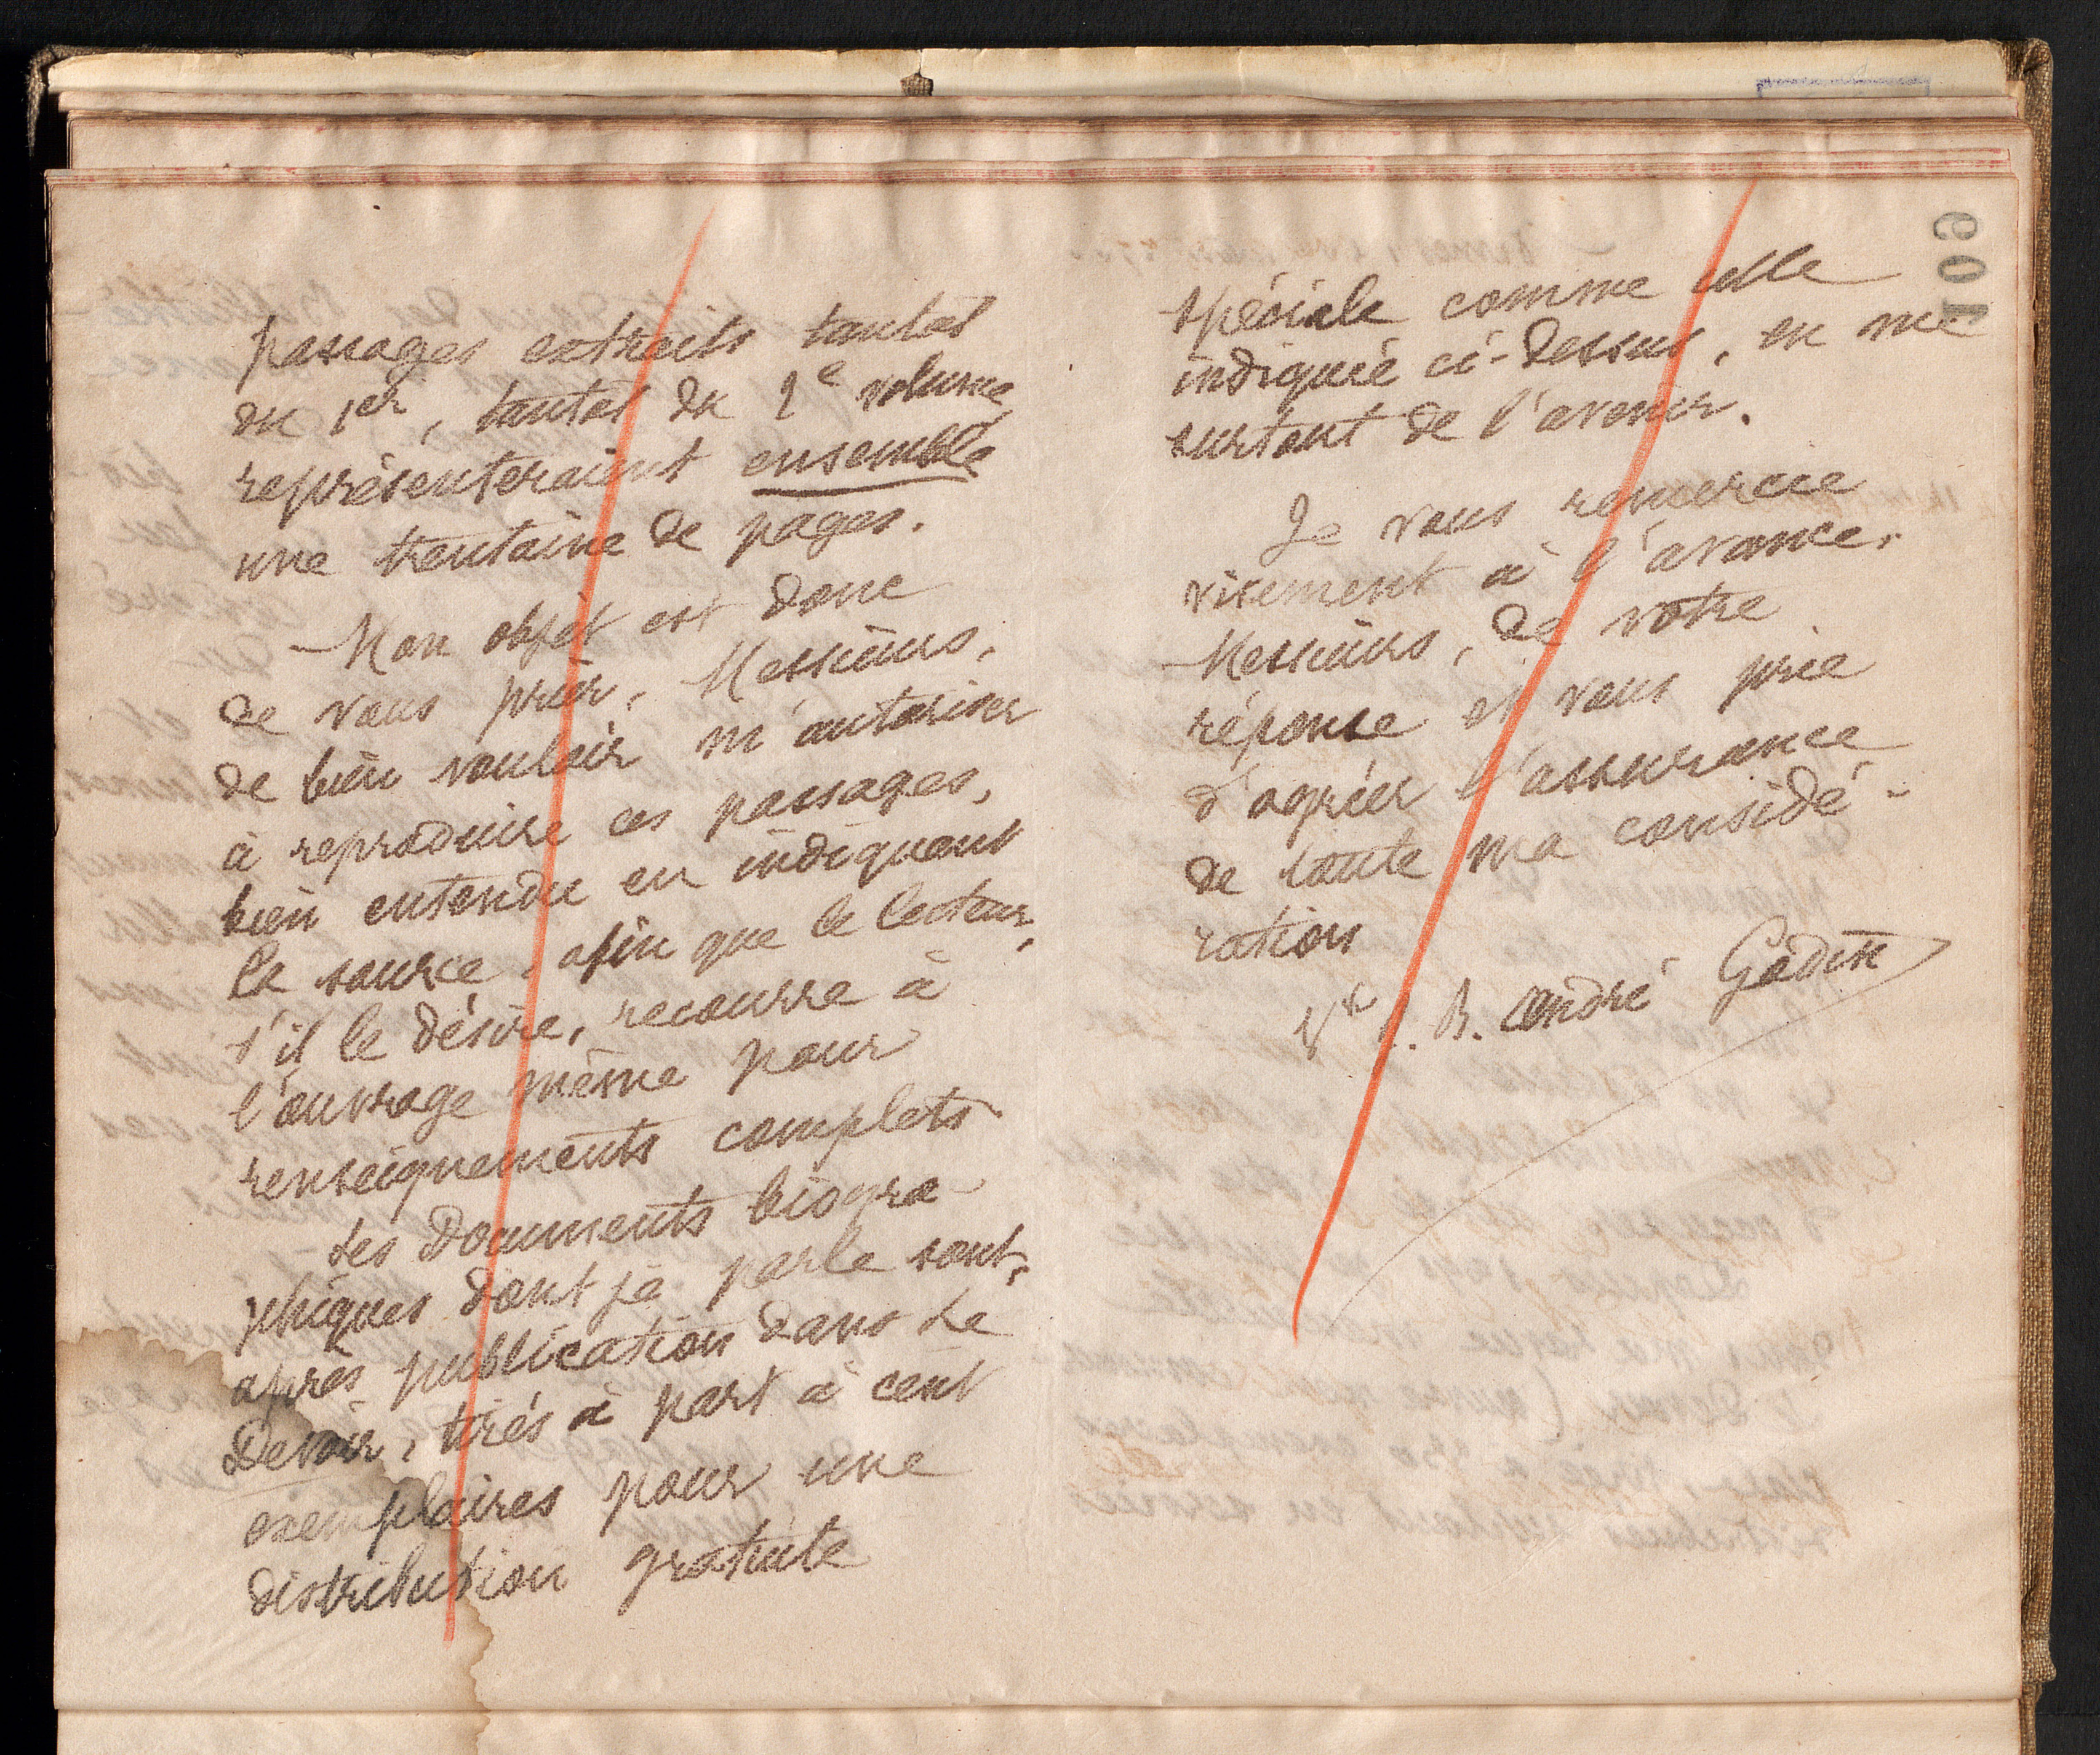 passages extraits tantôt
du 1er, tantôt du 2e volume
représenteraient ensemble
une trentaine de pages.
Mon objet est donc
de vous prier, Messieurs,
de bien vouloir m'autoriser
à reproduire ces passages,
bien entendu en indiquant
la source, afin que le lecteur,
s'il le désire, recourre à
l'ouvrage même pour
renseignements complets
Les Documents biogra-
phiques dont je parle sont,
après publication dans Le
Devoir, tirés à part à cent
exemplaires pour une
distribution gratuite
spéciale comme celle
indiquée ci-dessus, en vue
surtout de l'avenir.
Je vous remercie
vivement à l'avance,
Messieurs, de votre
réponse et vous prie
d'agréer l'assurance
de toute ma considé-
ration
Ve J. B. André Godin
109